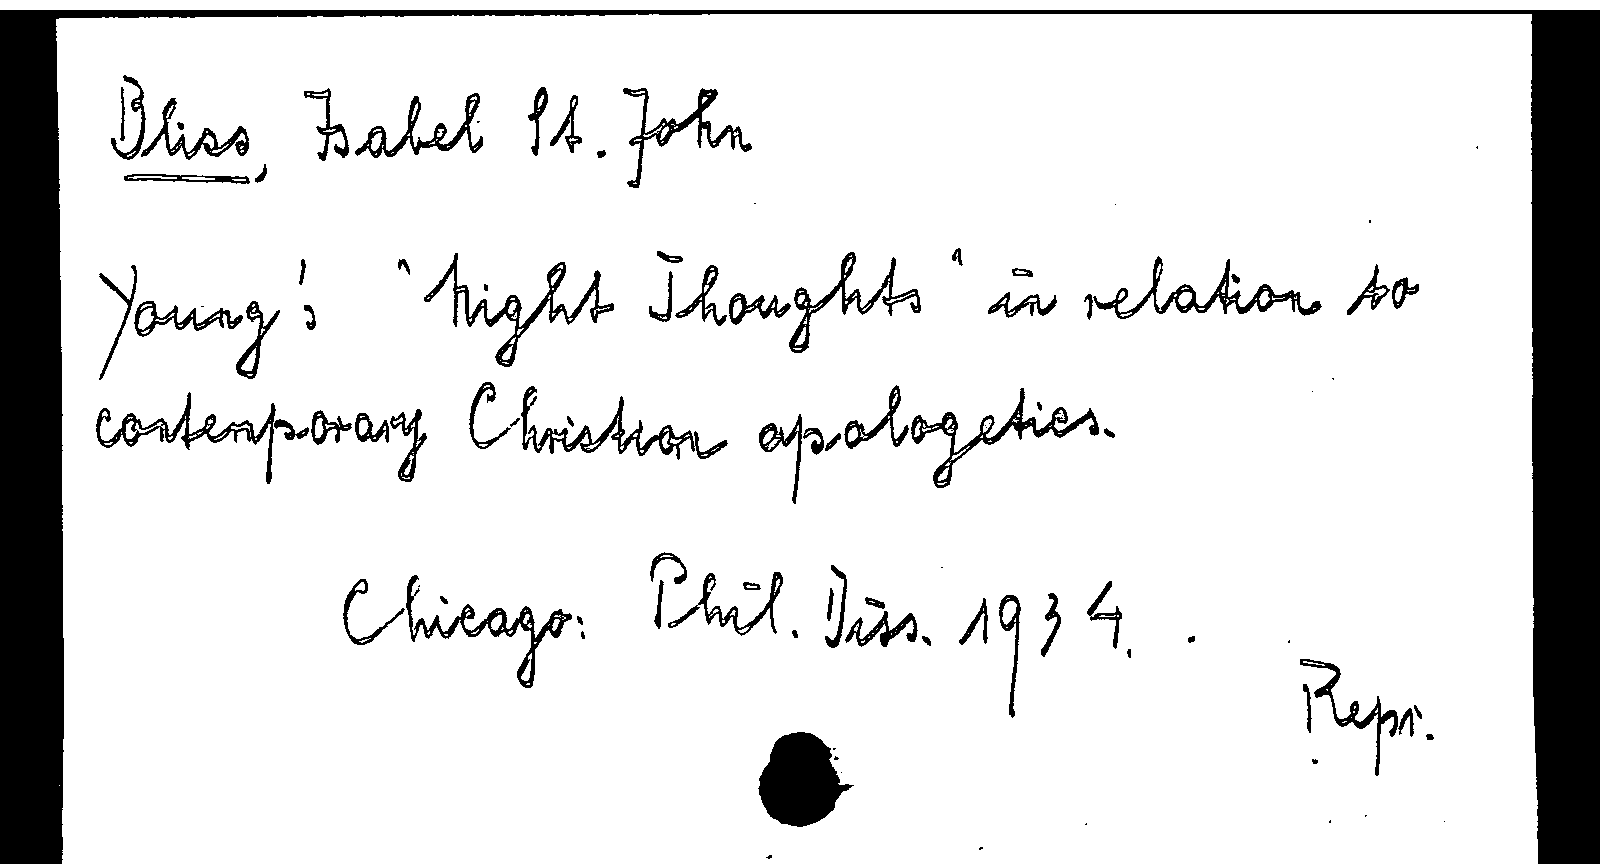 Bliss, Isabel St. John
Young's "Night Thoughts" in relation to
contemporary Christian apologetics.
Chicago: Phil. Diss. 1934.
Repr.